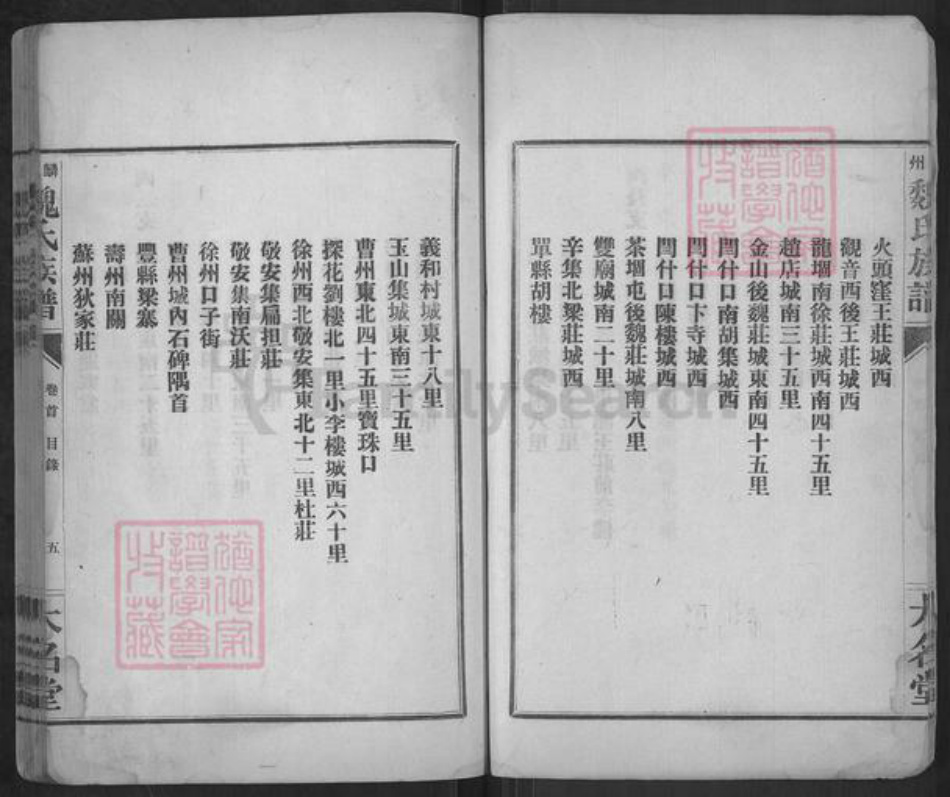 州
魏氏族譜
大名堂
火頭窪王莊城西
觀音西後王莊城西
龍堌南徐莊城西南四十五里
趙店城南三十五里
金山後魏莊城東南四十五里
閆什口南胡集城西
閆什口下寺城西
閆什口陳樓城西
茶堌屯後魏莊城南八里
雙廟城南二十里
辛集北梁莊城西
單縣胡樓
義和村城東十八里
玉山集城東南三十五里
曹州東北四十五里寶珠口
探花劉樓北一里小李樓城西六十里
徐州西北敬安集東北十二里杜莊
敬安集扁担莊
敬安集南沃莊
徐州口子街
曹州城內石碑隅首
豐縣梁寨
壽州南關
蘇州狄家莊
麟
魏氏族譜
卷首 目錄
五
大名堂
FamilySearch